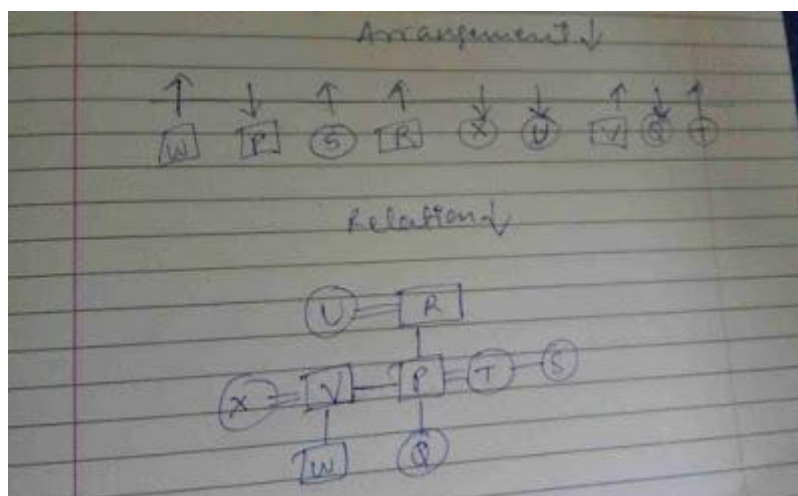 Arrangement ↓
W P S R X U V Q T
Relation ↓
U R
X V P T S
W Q